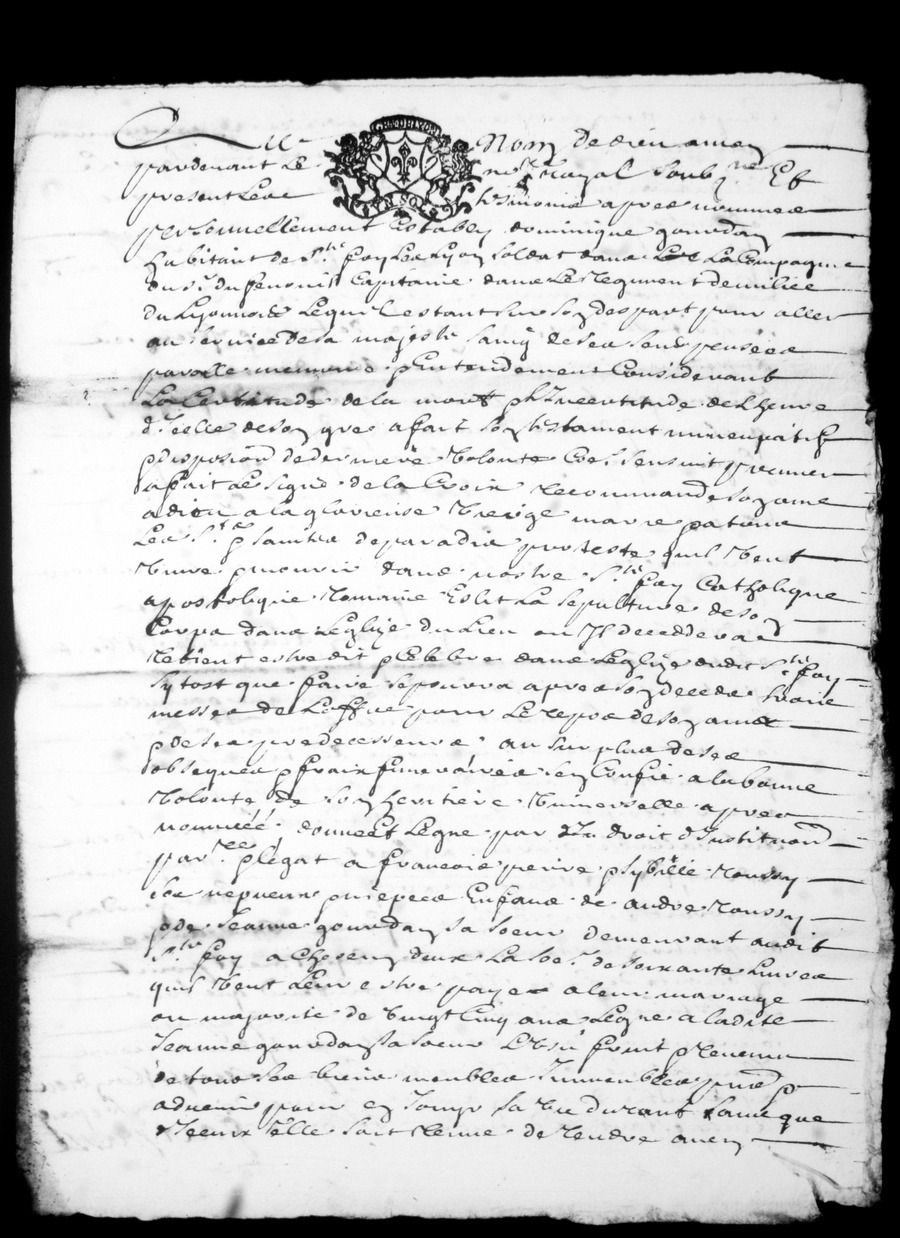 Au Nom de dieu amen
pardevant Le no.re Royal soub.né Et
present Les tesmoins apres nommes
personnellement Estably dominique gourdan
habitant de S.te foy Les Lyon soldat dans La Compagnie
du s.r du fenouil Capitaine dans Le Regiment de milice
du Lyonnois Lequel estant sur son despart pour aller
au service de sa majesté sain de ses sens pensées
parolle memoire & entendement Considerant
La Certitude de la mort & Incertitude de Lheure
d'Icelle de son gre a fait son testament nuncupatif
& disposion de derniere volonte Co.e sensuit premier
a fait Le signe de la Croix Recommande son ame
a dieu a la glorieuse vierge marie patrons
Les S.ts & saintes de paradis proteste quil veut
vivre & mourir dans nostre S.te foy Catholique
apostolique Romaine Eslit La sepulture de son
Corps dans Leglise du Lieu ou Il deceddera
Veut estre dit & Celebre dans Leglise dudit S.te foy
sy tost que faire se pourra apres son decedz trois
messes de Loffice pour Le repos de son ame
& de ses predecesseurs, au surplus de ses
obseques & fraix funeraires sen Confie a la bonne
volonte de son heritiere universelle apres
nommée, donne et Legue par droit d'Institution
par.re & legat a francois pierre & sybille Roussy
ses nepveux & niepces Enfans de andre Roussy
& de Jeanne gourdan sa soeur demeurant audit
S.te foy a Chascun deux La so.e de soixante Livres
quil veut Leur estre payee a leur mariage
ou majorité de vingt Cinq ans Legue a ladite
Jeanne gourdan sa soeur L'usu fruit & revenu
de tous ses biens meubles Immeubles pnts &
advenir pour en Jouyr sa vie durant sans que
dIceux Elle soit tenue de rendre aucun